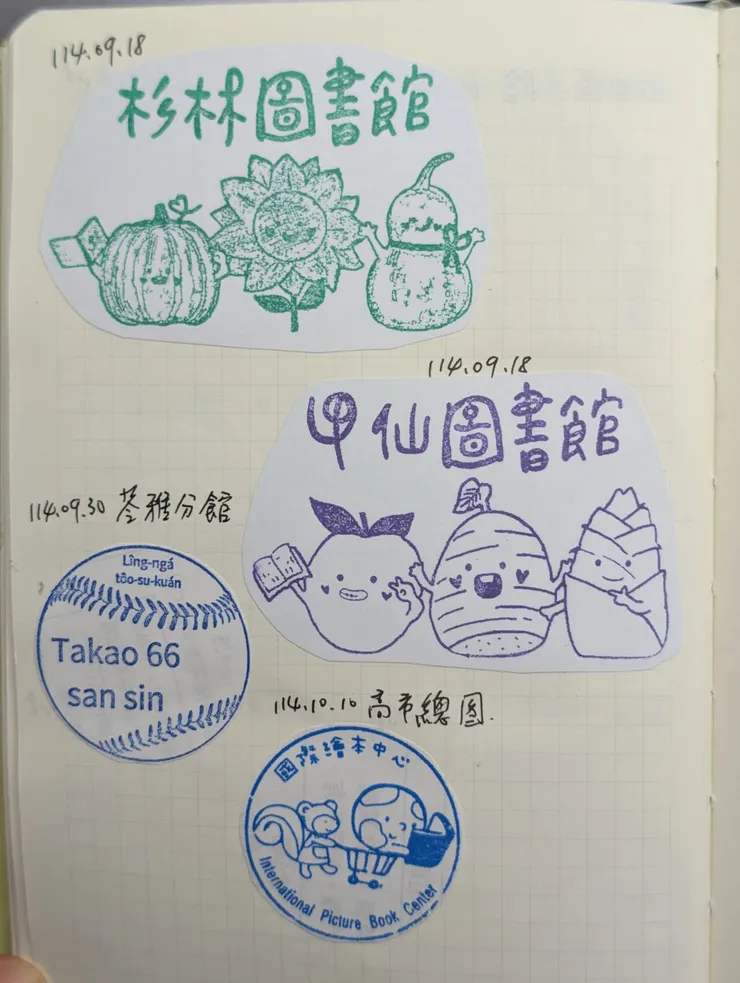 114.09.18
杉林圖書館
114.09.18
甲仙圖書館
114.09.30 苓雅分館
Lîng-ngá
tôo-su-kuán
Takao 66
san sin
114.10.10 高市總圖.
國際繪本中心
International Picture Book Center